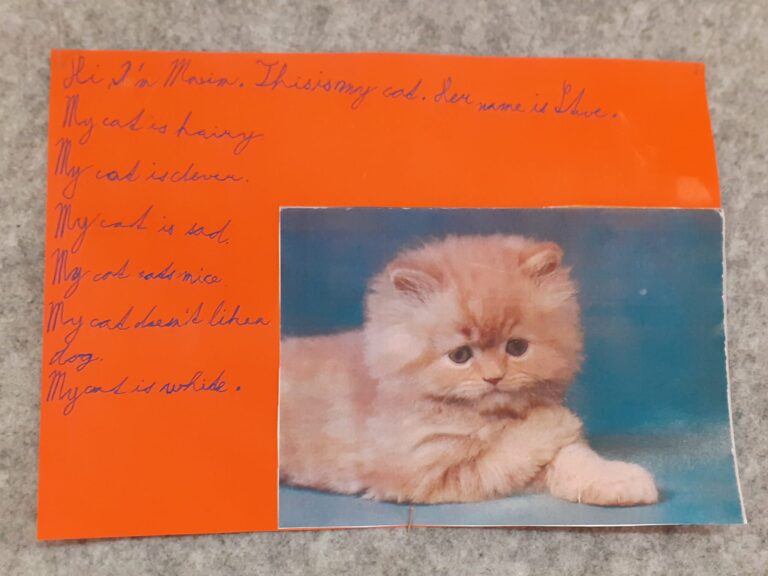 Hi I'm Maxim. This is my cat. Her name is
My cat is hairy
My cat is clever.
My cat is sad.
My cat eats mice.
My cat doesn't like a
dog.
My cat is white.